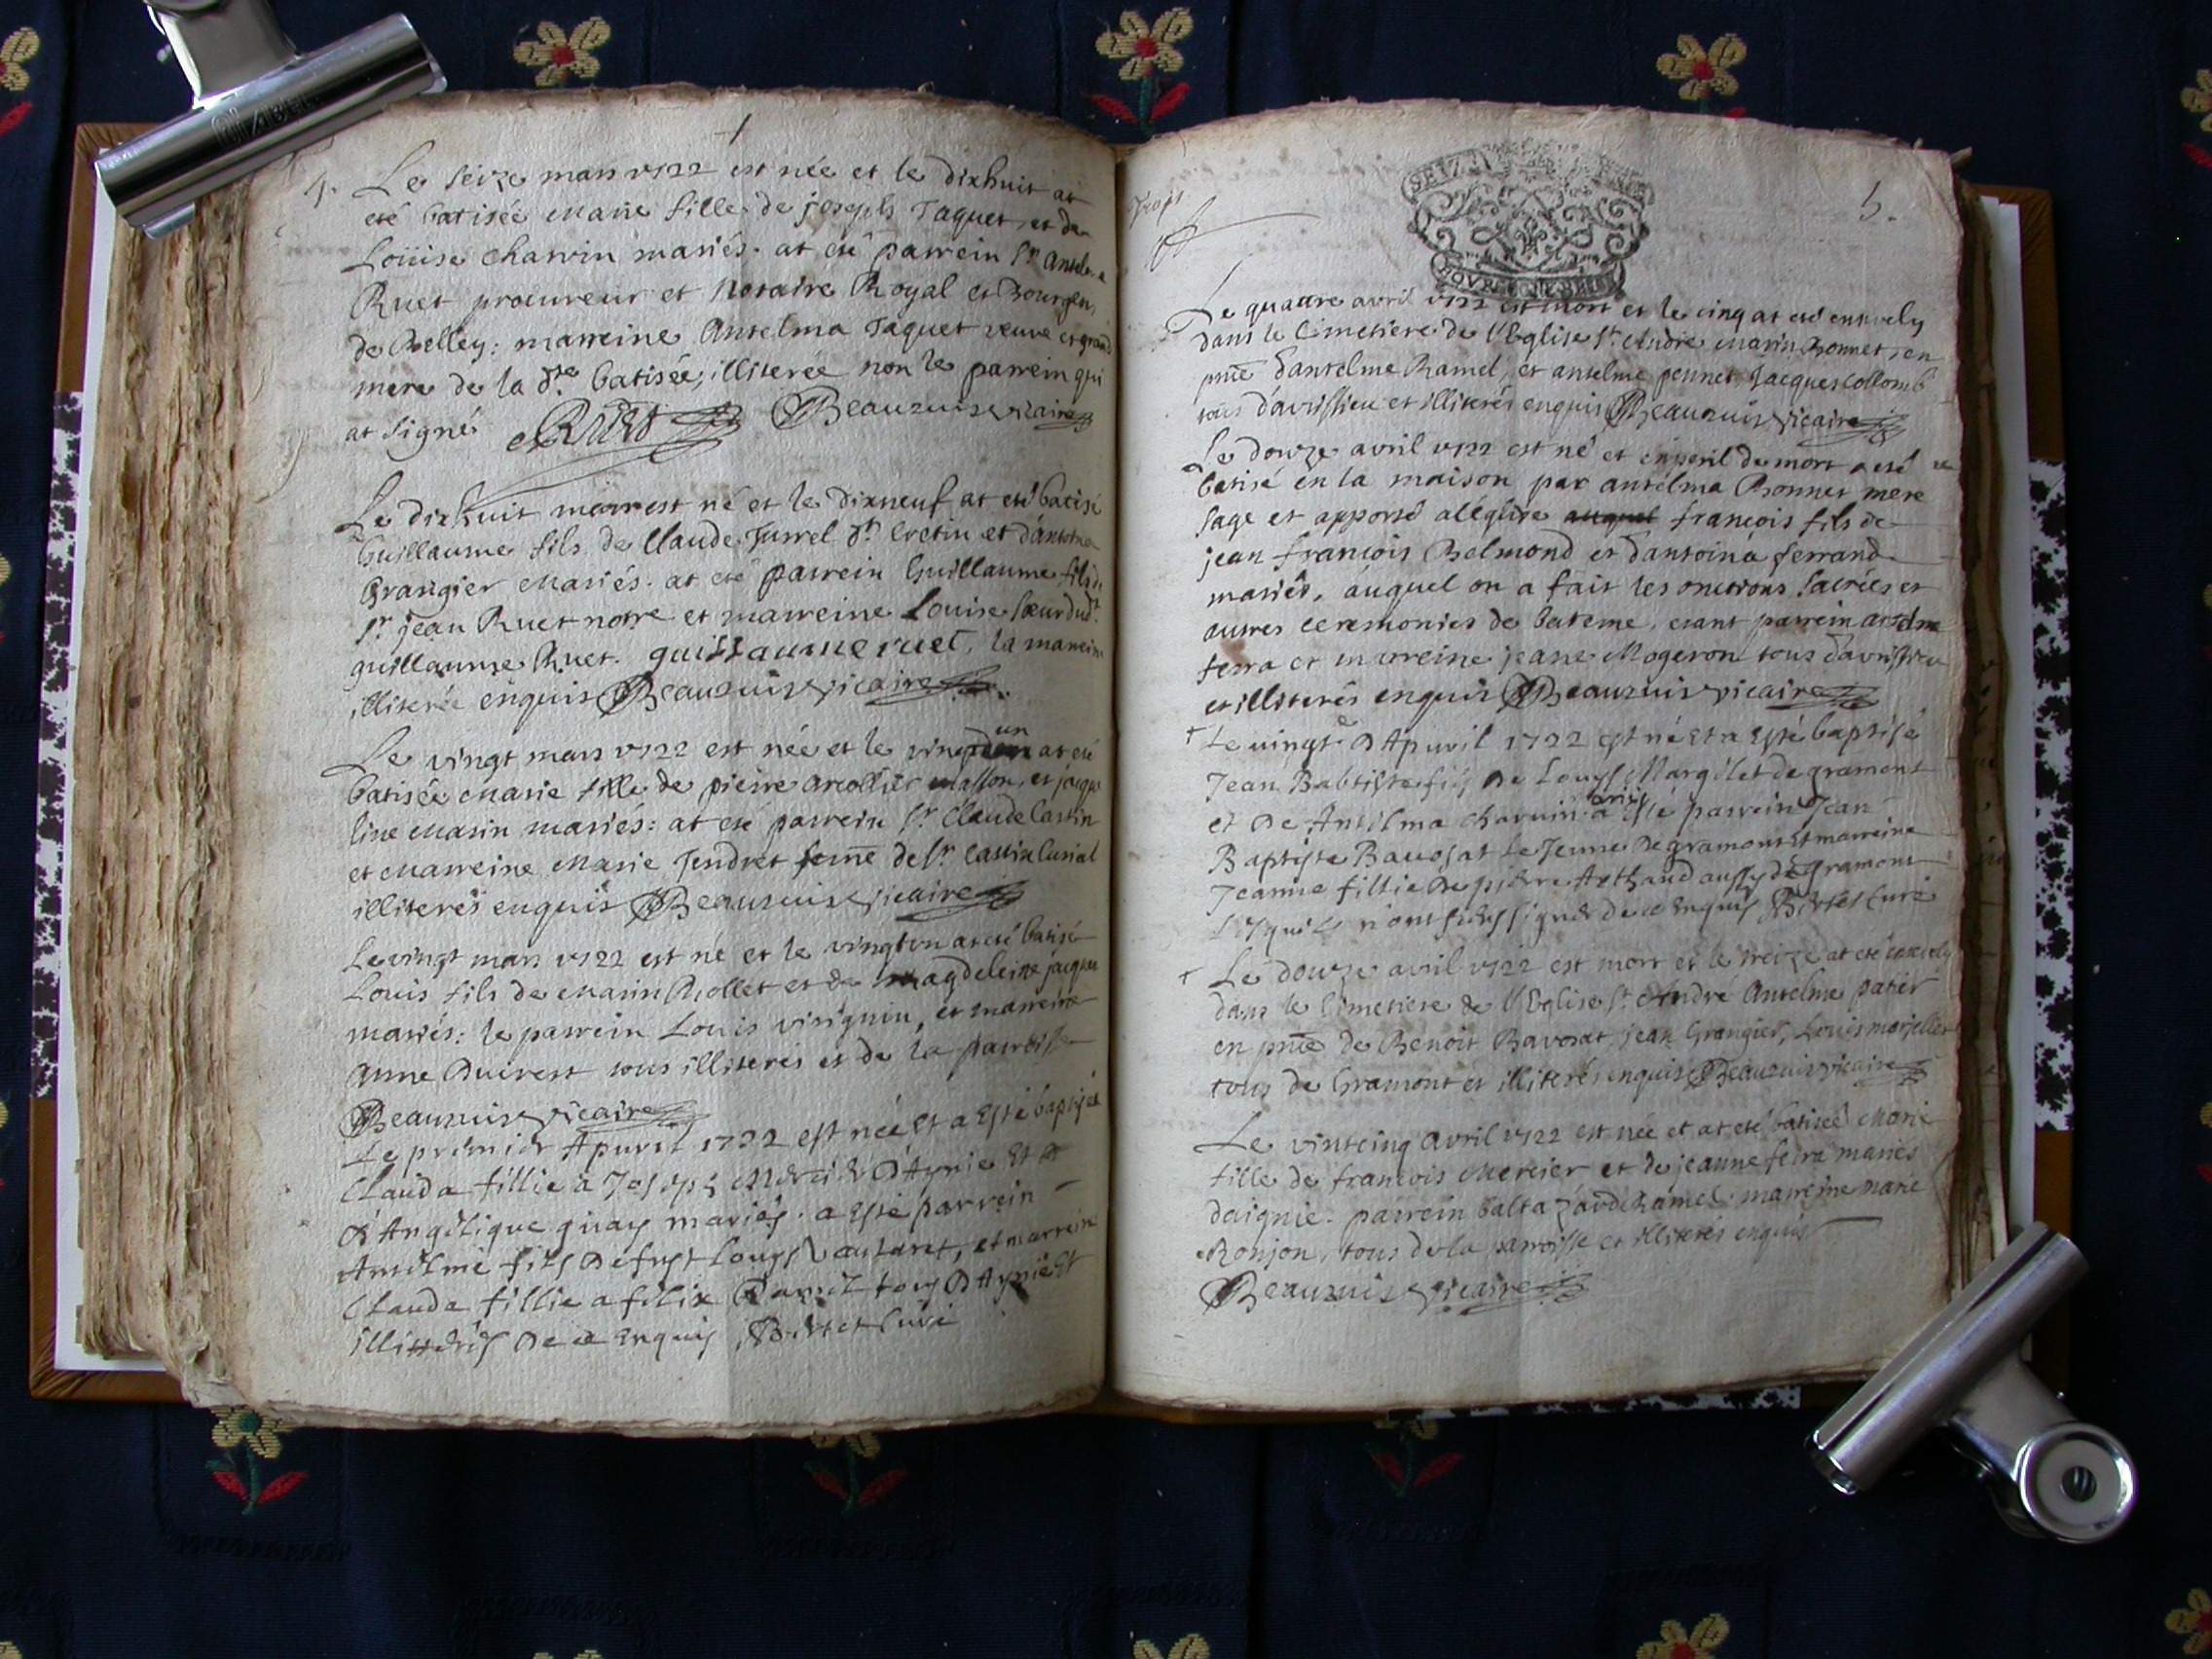 1
Le seize mars 1722 est née et le dixhuit at
eté batisée Marie fille de joseph Taquet, et de
Loüise Charvin mariés. at eté parrein Sr Antelme
Ruet procureur et Notaire Royal et Bourgeu,
de Belley: marreine Antelma Taquet veuve et grand
mere de la dte batisée, illiterée non le parrein qui
at signé Ruet Beauzuis vicaire
Le dixhuit mars est né et le dixneuf at eté batisé
Guillaume fils de Claude Turrel dt Cretin et d'antoina
Grangier Mariés. at eté parrein Guillaume fils
Sr jean Ruet notre et marreine Louise sœur dudt
guillaume Ruet. guillaume ruet, la marreine
illiterée enquis Beauzuis vicaire
Le vingt mars 1722 est née et le vingt un at eté
batisée Marie fille de pierre masson, et jacque
line Marin mariés: at eté parrein Sr Claude Castin
et Marreine Marie Jendret feme de Sr Castin
illiterés enquis Beauzuis vicaire
Le vingt mars 1722 est né et le vingtun at eté batisé
Louis fils de Marin Rollet et de Magdeleine jacquet
mariés: le parrein Louis virignin, et marreine
Anne Duirest tous illiterés et de la parroisse
Beauzuis vicaire
Le premier Apuril 1722 est née Et a Esté baptisée
Clauda fillie a Joseph Mercier D'Aynie Et
d'Angelique guay mariés. a Esté parrein
Antelme fils De fust Louys Vautaret, et marreine
Clauda fillie a felix Ramel tous D'Aynie Et
illitterés De ce Enquis Bertet Curé
5.
SEIZE
Le quattre avril 1722 est mort et le cinq at eté ensevely
dans le Cimetiere de l'Eglise St Andre Marin Bonnet, en
pnce d'antelme Ramel, et antelme pennet, Jacques Collomb
tous d'avrissieu et illiterés enquis Beauzuis vicaire
Le douze avril 1722 est né et en peril de mort a eté
batisé en la maison par antelma Bonnet mere
sage et apporté a l'églize auquel françois fils de
jean françois Belmond et d'antoina ferrand
mariés, auquel on a fait les onctions sacrées et
autres ceremonies de bateme, etant parrein
ferra et marreine jeane Mogeron tous d'avrissieu
et illiterés enquis Beauzuis vicaire
+ Le vingt D'Apuril 1722 est né Et a Esté baptisé
Jean Babtiste fils De Louys Margilet de gramont
et De Antelma Charuin mariés a Esté parrein Jean
Baptiste Bauosat Le Jeune De gramont Et marreine
Jeanne fillie De pierre Arthaud aussy de gramont
Lesquels n'ont sceus signer de ce Enquis Bertet Curé
+ Le douze avril 1722 est mort et le treize at eté ensevely
dans le Cimetiere de l'Eglise St Andre Antelme patier
en pnce de Benoit Bavosat, jean Grangier, Louis marjollet
tous de Gramont et illiterés enquis Beauzuis vicaire
Le vintcinq Avril 1722 est née et at eté batisée Marie
fille de francois Mercier et de jeanne ferra mariés
daignie. parrein Baltazard Ramel. marreine marie
Ronjon, tous de la parroisse et illiterés enquis
Beauzuis vicaire